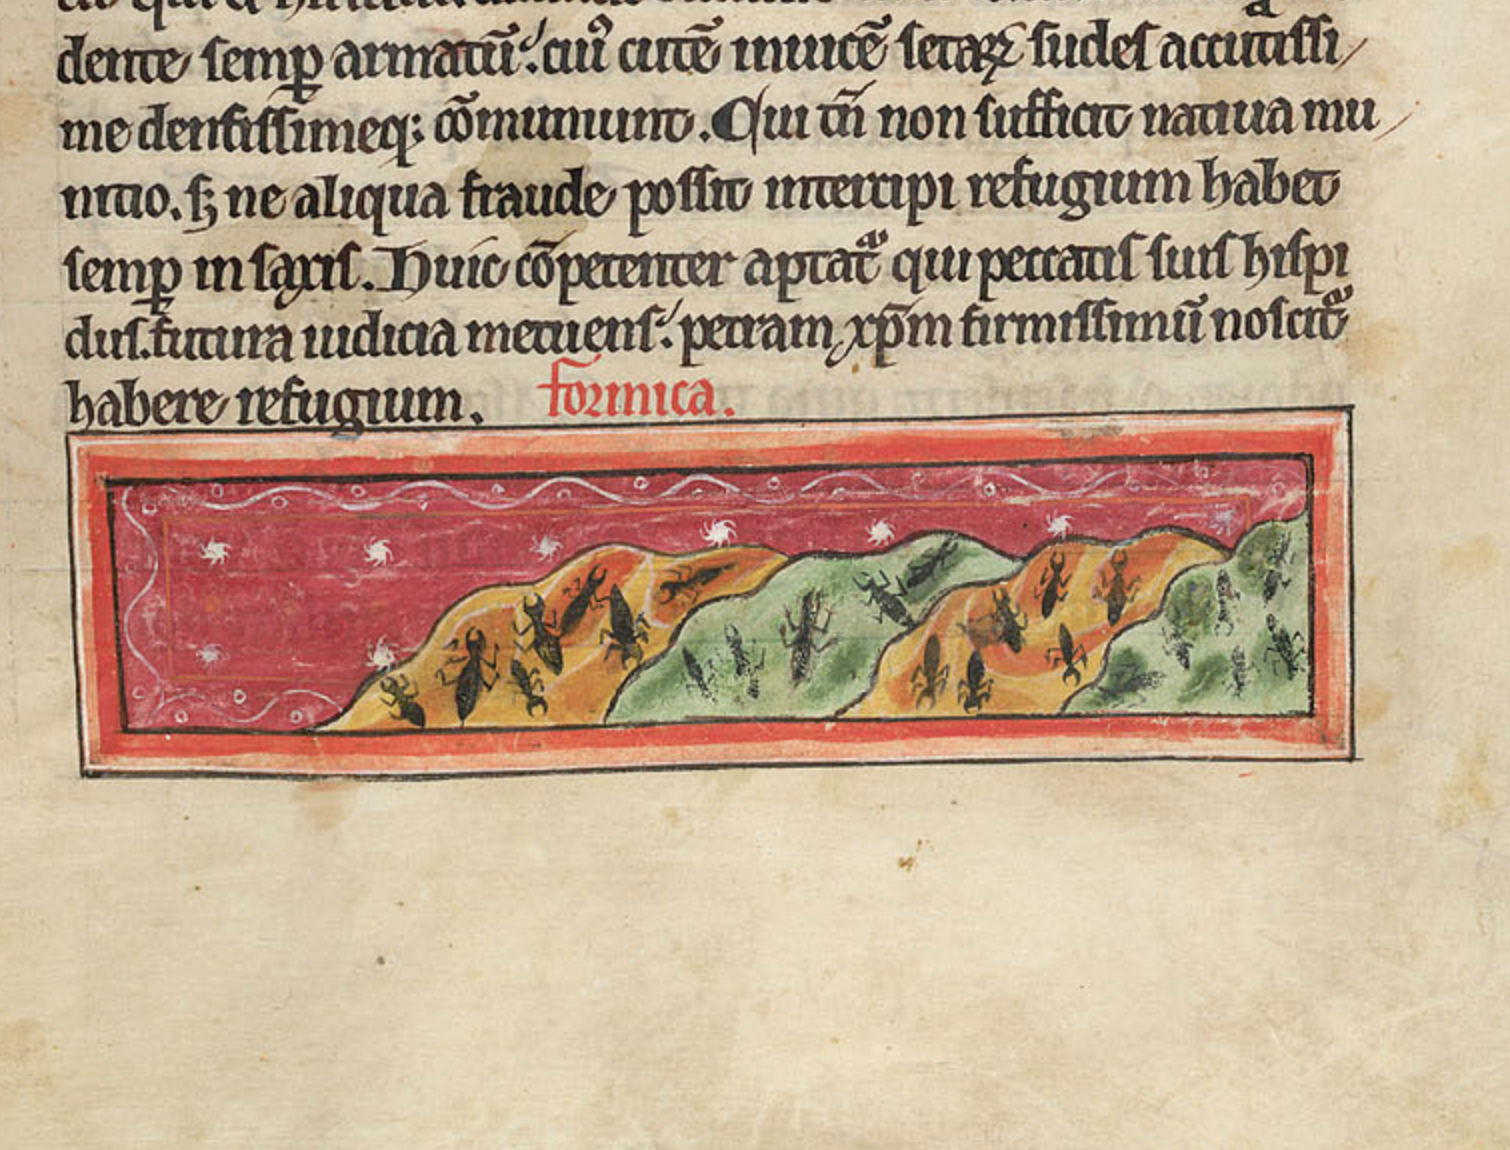 dente semꝑ armatū. cuiꝰ cutē inuicē setaꝝ sudes accutissi
me densissimeq; cōmuniunt. Qui tn̄ non sufficit natiua mu
nitio. sꝫ ne aliqua fraude possit intercipi refugium habet
semꝑ in saxis. Huic cōpetenter aptatᷓ qui peccatis suis hispi
dus. futura iudicia metuens. petram xp̄m firmissimū noscitᷓ
habere refugium. formica.